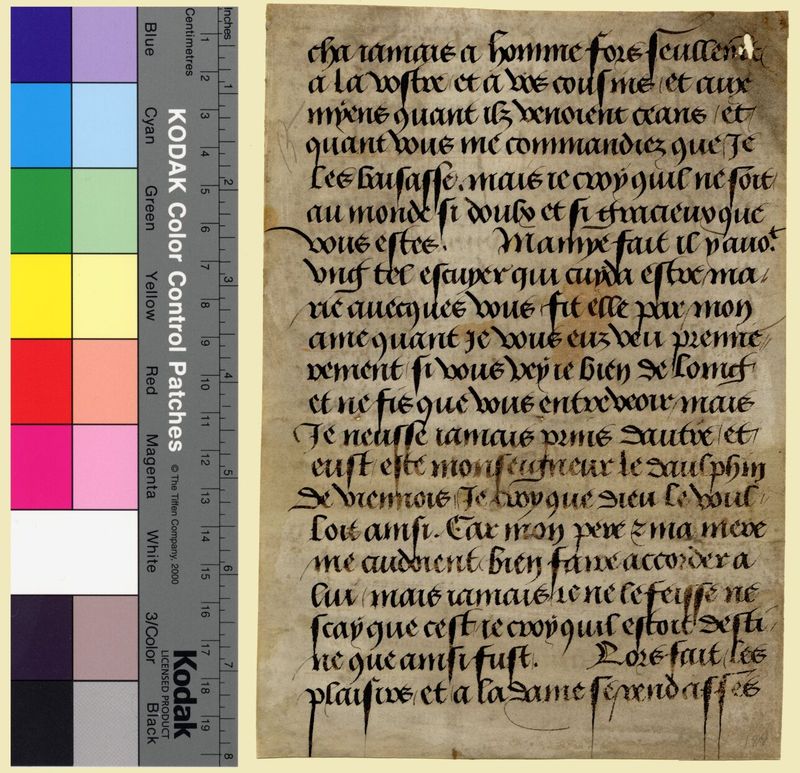 Inches
Centimetres
1 2 3 4 5 6 7 8
1 2 3 4 5 6 7 8 9 10 11 12 13 14 15 16 17 18 19
KODAK Color Control Patches
© The Tiffen Company, 2000
Kodak
LICENSED PRODUCT
Blue
Cyan
Green
Yellow
Red
Magenta
White
3/Color
Black
cha iamais a homme fors seullem
a la vostre et a vos cousins / et aux
myens quant ilz venoient ceans / et
quant vous me commandiez que Je
les baisasse. mais ie croy quil ne soit
au monde si doulx et si gracieux que
vous estes. Mamye fait il y auoit
vng tel escuyer qui cuyda estre ma/
rie auecques vous / fit elle par mon
ame quant Je vous euz veu premie/
rement / si vous vey ie bien de loing
et ne fis que vous entreveoir / mais
Je neusse iamais prins dautre / et
eust este monseigneur le daulphin
de viennois / Je croy que dieu le voul/
loit ainsi. Car mon pere & ma mere
me cudoient bien faire accorder a
lui / mais iamais ie ne le feisse ne
scay que cest ie croy quil estoit desti/
ne que ainsi fust. Lors fait les
plaisirs / et a la dame se rend asses